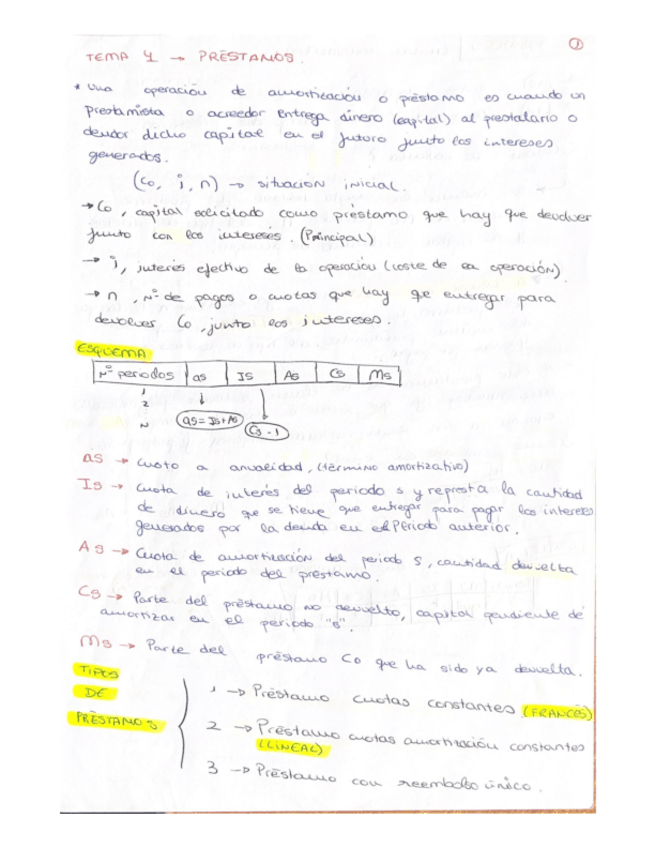 ①
TEMA 4 → PRÉSTAMOS.
* Una operación de amortización o préstamo es cuando un
prestamista o acreedor entrega dinero (capital) al prestatario o
deudor dicho capital en el futuro junto los intereses
generados.
(Co, i, n) → situación inicial.
→ Co, capital solicitado como préstamo que hay que devolver
junto con los intereses. (Principal)
→ i, interés efectivo de la operación (coste de la operación)
→ n, Nº de pagos o cuotas que hay que entregar para
devolver Co, junto los intereses.
ESQUEMA
Nº periodos | as | Is | As | Cs | Ms
1
2
N
as = Is + As
Cs - 1
as → Cuota a anualidad, (término amortizativo)
Is → Cuota de interés del periodo s y represta la cantidad
de dinero qe se tiene que entregar para pagar los interes
generados por la deuda en el Periodo anterior.
As → Cuota de amortización del periodo s, cantidad devuelta
en el periodo del préstamo.
Cs → Parte del préstamo no devuelto, capital pendiente de
amortizar en el periodo "s".
Ms → Parte del préstamo Co que ha sido ya devuelta.
TIPOS
DE
PRÉSTAMOS
1 → Préstamo cuotas constantes (FRANCÉS)
2 → Préstamo cuotas amortización constantes
(LINEAL)
3 → Préstamo con reembolso único.